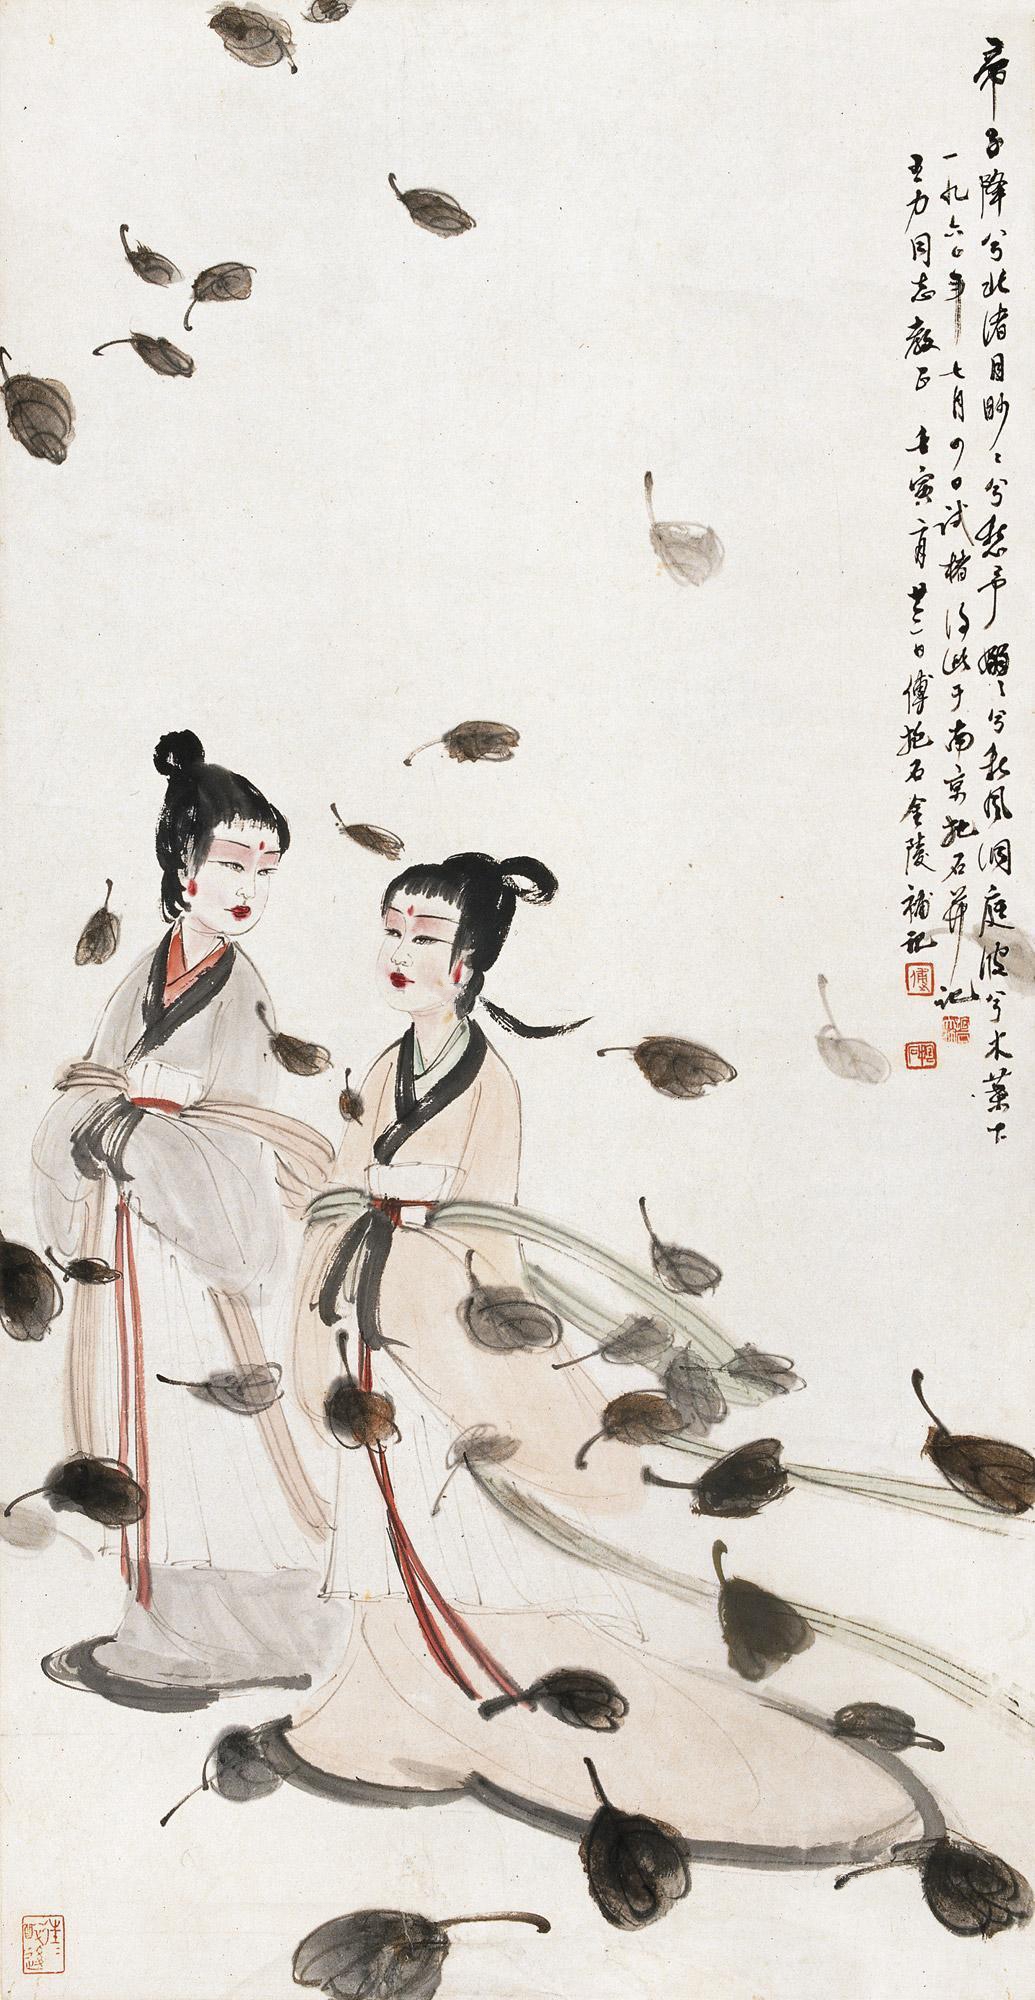 帝子降兮北渚目眇〻兮愁予嫋〻兮秋風洞庭波兮木葉下
一九六〇年七月四日試楮得此于南京抱石并記
王力同志教正 壬寅二月廿二日傅抱石金陵補記
傅
往往醉後